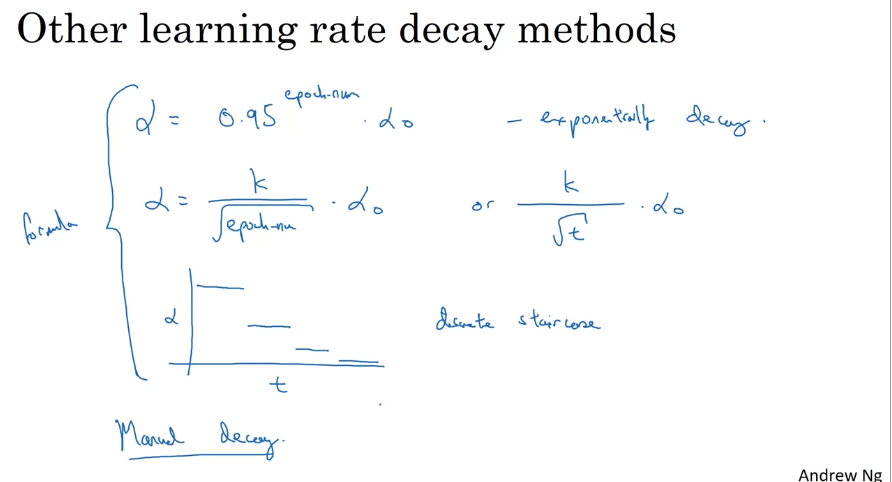 Other learning rate decay methods
α = 0.95^epoch-num · α₀ - exponentially decay.
α = k / √epoch-num · α₀ or k / √t · α₀
formula
α discrete staircase
t
Manual decay.
Andrew Ng